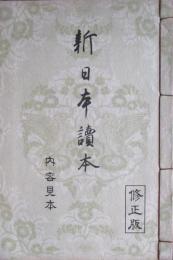 新日本讀本
内容見本
修正版